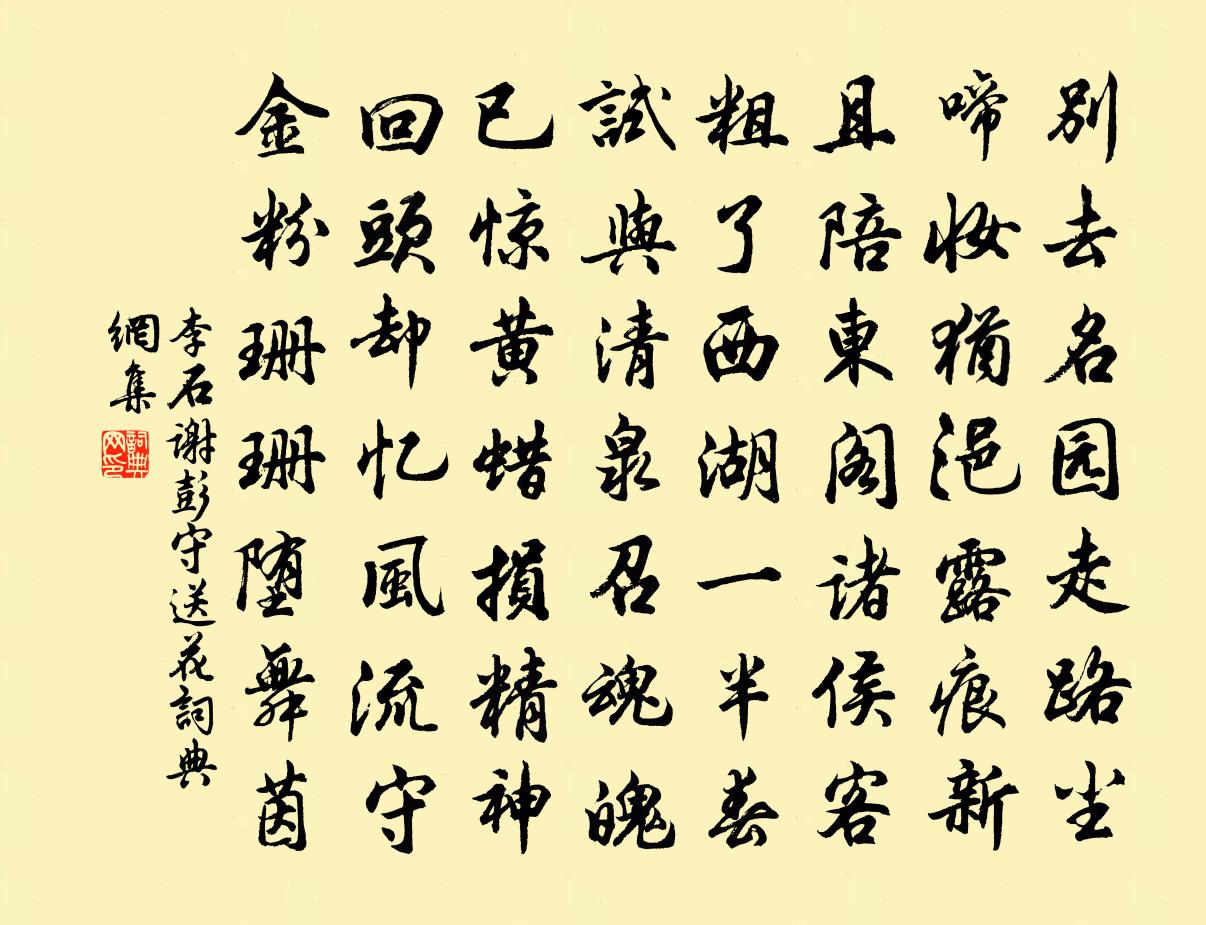 別去名园走路尘
啼妆猶浥露痕新
且陪東阁诸侯客
粗了西湖一半春
試與清泉召魂魄
已惊黄蜡損精神
回頭却忆風流守
金粉珊珊堕舞茵
李石谢彭守送花詞典
網集
詞典
网印